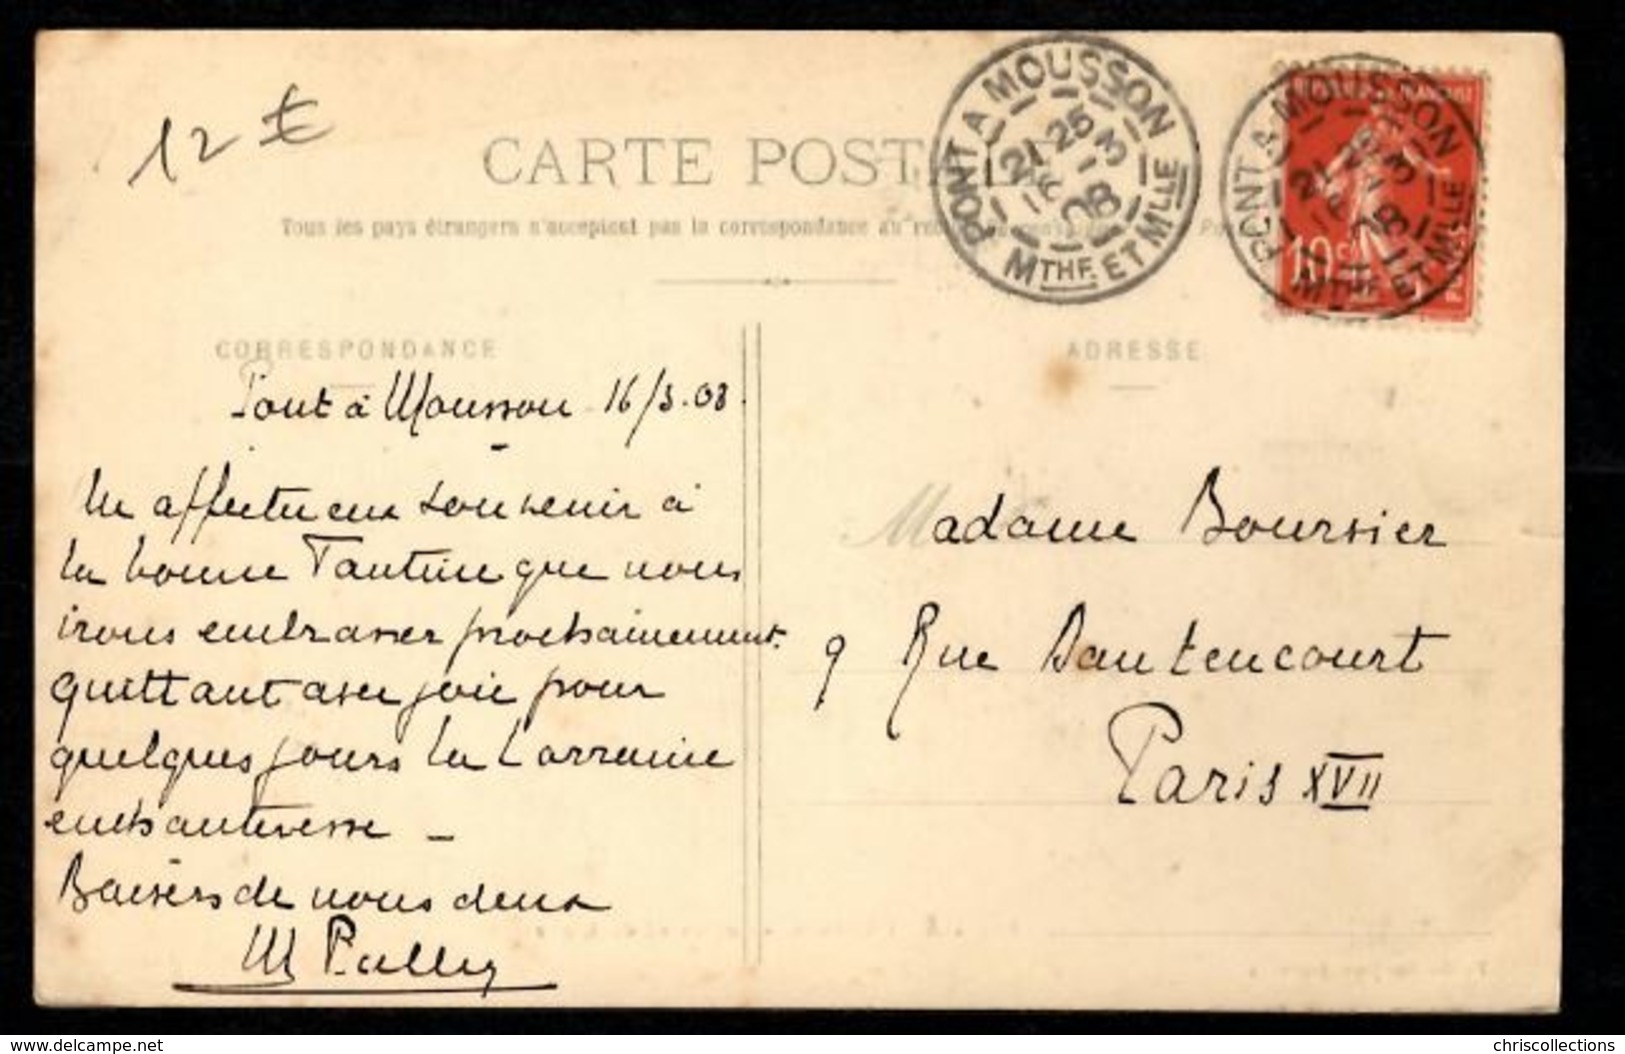 12 €
CARTE POSTALE
Tous les pays étrangers n'acceptent pas la correspondance au
PONT A MOUSSON
21 25
16 - 3
08
MTHE ET MLLE
PONT A MOUSSON
21 25
16 - 3
08
MTHE ET MLLE
10 c
CORRESPONDANCE
Pont à Mousson 16/3.08.
Un affectueux souvenir à
la bonne Tantine que nous
irons embrasser prochainement.
quittant avec joie pour
quelques jours la Lorraine
enchanteresse _
Baisers de nous deux
M Pally
ADRESSE
Madame Boursier
9 Rue Dautencourt
Paris XVII
www.delcampe.net
chriscollections